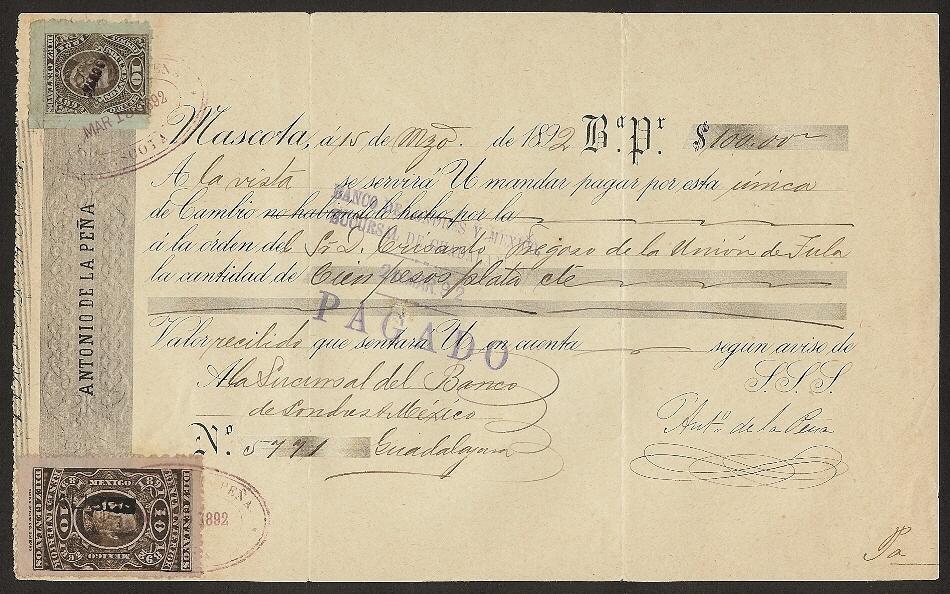 Mascota, á 15 de Mzo. de 1892 B.ª P.r $100.00
A la vista se servirá U mandar pagar por esta única
de Cambio no habiendolo hecho por la
á la órden del Sr. D. Crisanto Fregoso de la Unión de Tula
la cantidad de Cien pesos plata cte
Valor recibido que sentará U en cuenta segun aviso de
S.S.S.
A la Sucursal del Banco
de Londres & México
Ant.o de la Peña
N.o 5771 Guadalajara
Pa
ANTONIO DE LA PEÑA
BANCO DE LONDRES Y MEXICO
SUCURSAL DE
PAGADO
10
DIEZ CENTAVOS
MAR 15 1892
MASCOTA
MEXICO
RENTA INTERIOR
DIEZ CENTAVOS
10
10
MEXICO
PEÑA
1892